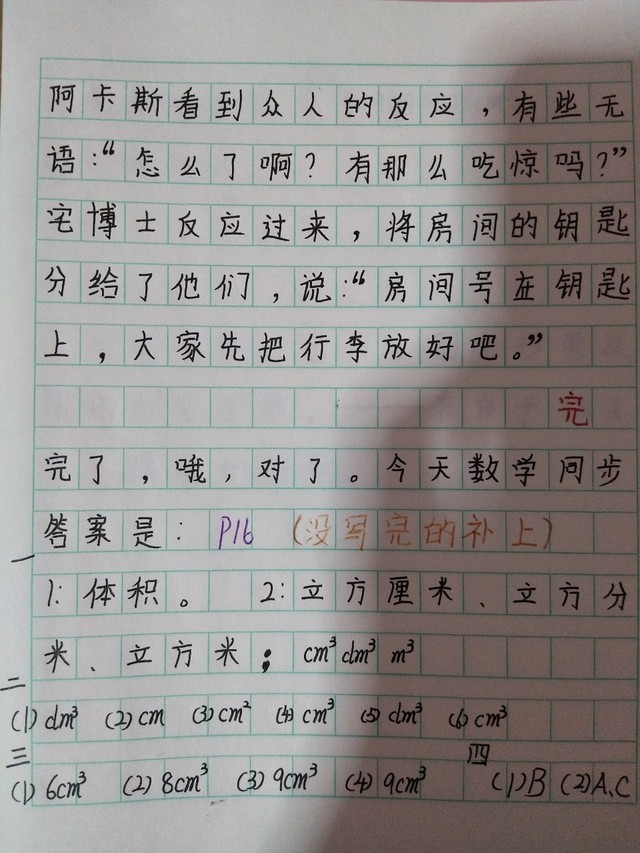 阿卡斯看到众人的反应，有些无
语：“怎么了啊？有那么吃惊吗？”
宅博士反应过来，将房间的钥匙
分给了他们，说：“房间号在钥匙
上，大家先把行李放好吧。”
完
完了，哦，对了。今天数学同步
答案是：P16（没写完的补上）
一
1：体积。 2：立方厘米、立方分
米、立方米；cm³ dm³ m³
二
(1) dm³ (2) cm (3) cm² (4) cm³ (5) dm³ (6) cm³
三 四
(1) 6cm³ (2) 8cm³ (3) 9cm³ (4) 9cm³ (1) B (2) A、C